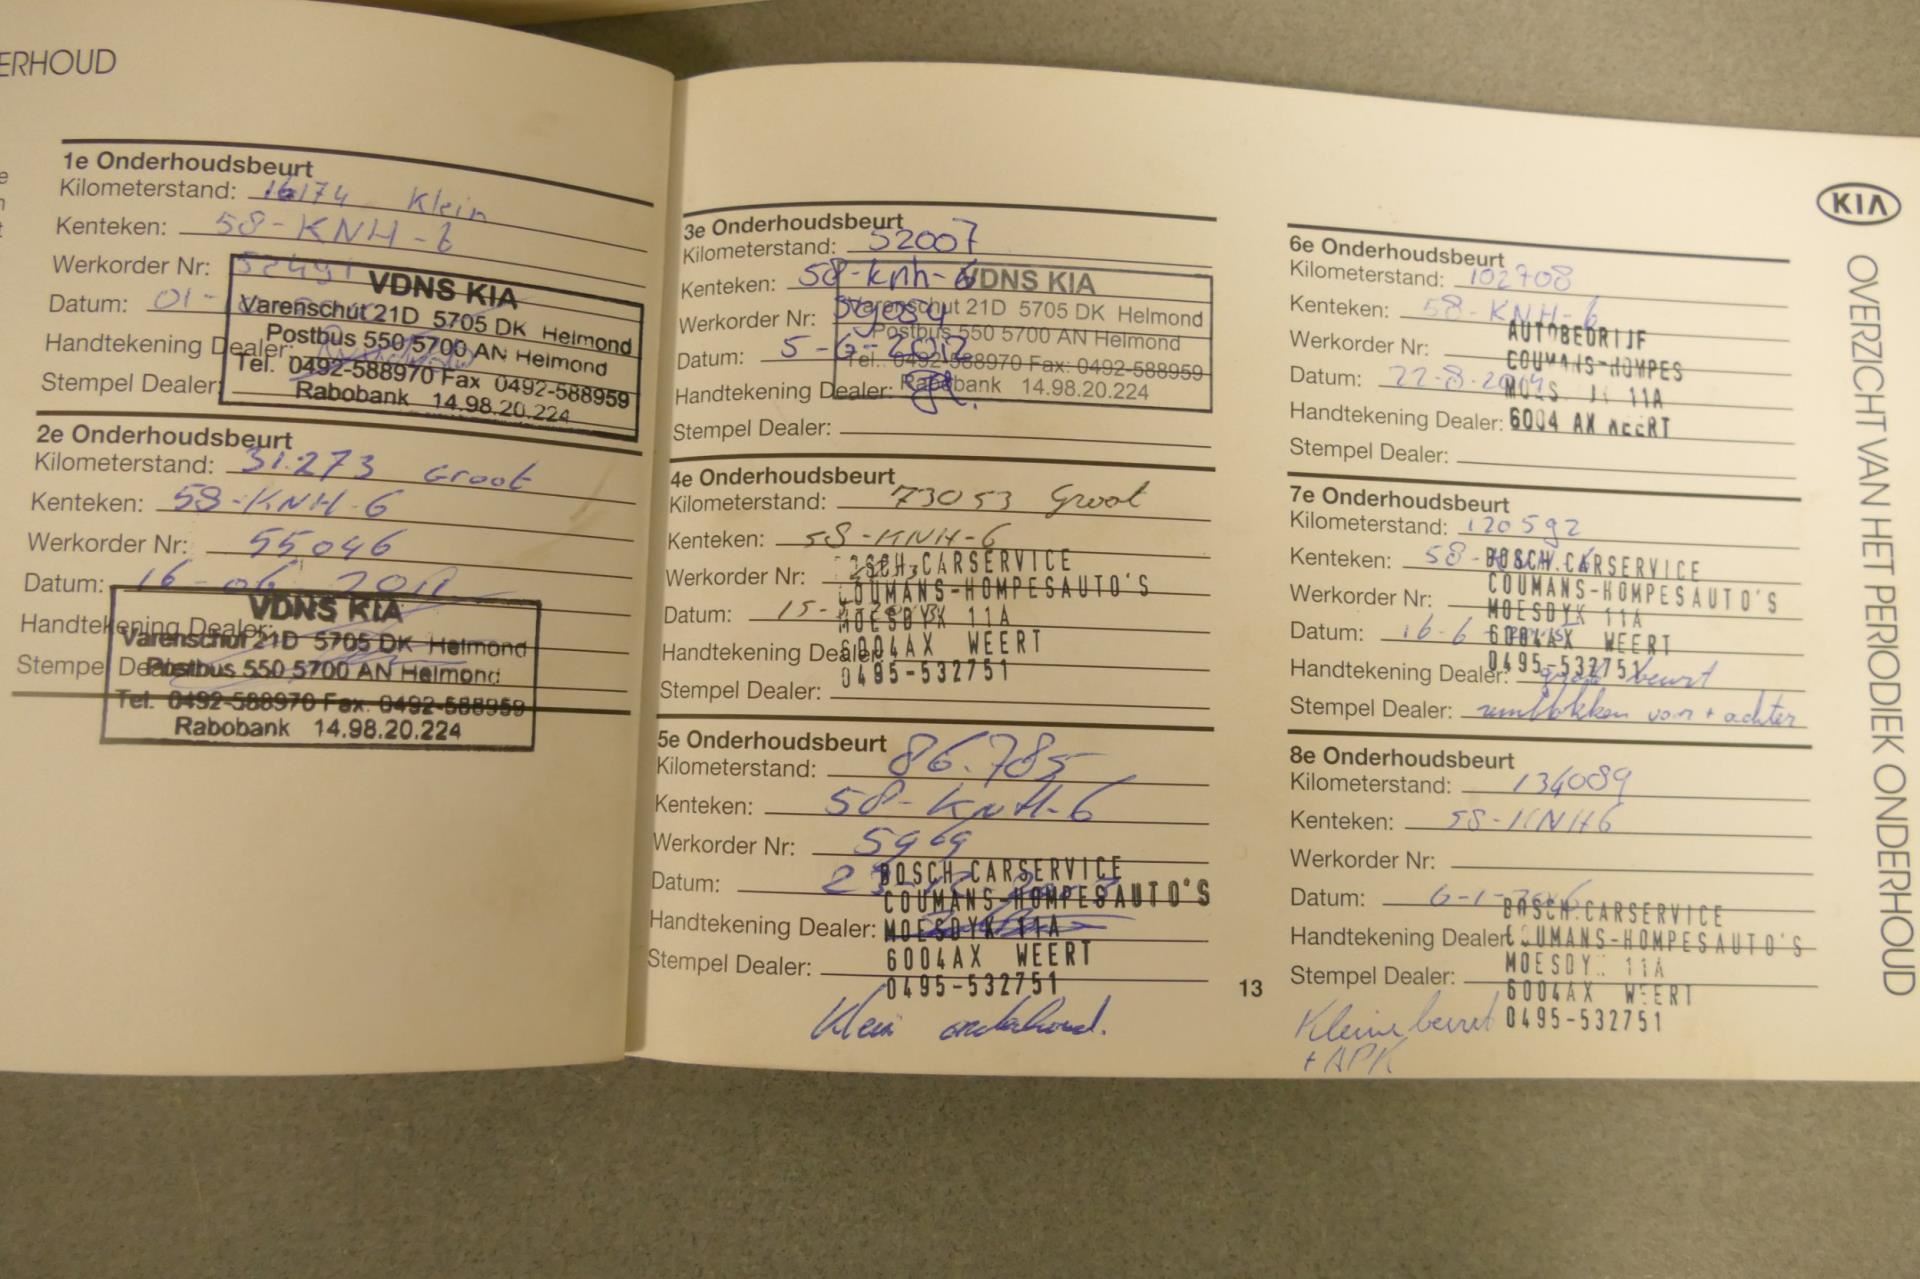 ERHOUD
1e Onderhoudsbeurt
Kilometerstand: 16174 Klein
Kenteken: 58-KNH-6
Werkorder Nr: 52491
Datum: 01-
Handtekening Dealer:
Stempel Dealer:
VDNS KIA
Varenschut 21D 5705 DK Helmond
Postbus 550 5700 AN Helmond
Tel. 0492-588970 Fax 0492-588959
Rabobank 14.98.20.224
2e Onderhoudsbeurt
Kilometerstand: 31.273 Groot
Kenteken: 58-KNH-6
Werkorder Nr: 55046
Datum: 16-06-2011
Handtekening Dealer:
Stempel Dealer:
VDNS KIA
Varenschut 21D 5705 DK Helmond
Postbus 550 5700 AN Helmond
Tel. 0492-588970 Fax: 0492-588959
Rabobank 14.98.20.224
3e Onderhoudsbeurt
Kilometerstand: 52007
Kenteken: 58-knh-6
Werkorder Nr: 59084
Datum: 5-6-2012
Handtekening Dealer:
Stempel Dealer:
VDNS KIA
Varenschut 21D 5705 DK Helmond
Postbus 550 5700 AN Helmond
Tel.: 0492-588970 Fax: 0492-588959
Rabobank 14.98.20.224
4e Onderhoudsbeurt
Kilometerstand: 73053 Groot
Kenteken: 58-KNH-6
Werkorder Nr:
Datum: 15-
Handtekening Dealer:
Stempel Dealer:
BOSCH CARSERVICE
COUMANS-HOMPESAUTO'S
MOESDYK 11A
6004AX WEERT
0495-532751
5e Onderhoudsbeurt
Kilometerstand: 86.785
Kenteken: 58-KNH-6
Werkorder Nr: 5969
Datum:
Handtekening Dealer:
Stempel Dealer:
BOSCH CARSERVICE
COUMANS-HOMPESAUTO'S
MOESDYK 11A
6004AX WEERT
0495-532751
Klein onderhoud.
13
6e Onderhoudsbeurt
Kilometerstand: 102708
Kenteken: 58-KNH-6
Werkorder Nr:
Datum: 22-8-2014
Handtekening Dealer:
Stempel Dealer:
AUTOBEDRIJF
COUMANS-HOMPES
11A
6004 AX WEERT
7e Onderhoudsbeurt
Kilometerstand: 120592
Kenteken: 58-
Werkorder Nr:
Datum: 16-6
Handtekening Dealer: grote beurt
Stempel Dealer: remblokken voor + achter
BOSCH CARSERVICE
COUMANS-HOMPESAUTO'S
MOESDYK 11A
6004AX WEERT
0495-532751
8e Onderhoudsbeurt
Kilometerstand: 134089
Kenteken: 58-KNH6
Werkorder Nr:
Datum: 6-1-2016
Handtekening Dealer:
Stempel Dealer:
BOSCH CARSERVICE
COUMANS-HOMPESAUTO'S
MOESDYK 11A
6004AX WEERT
0495-532751
Kleine beurt
+ APK
KIA
OVERZICHT VAN HET PERIODIEK ONDERHOUD